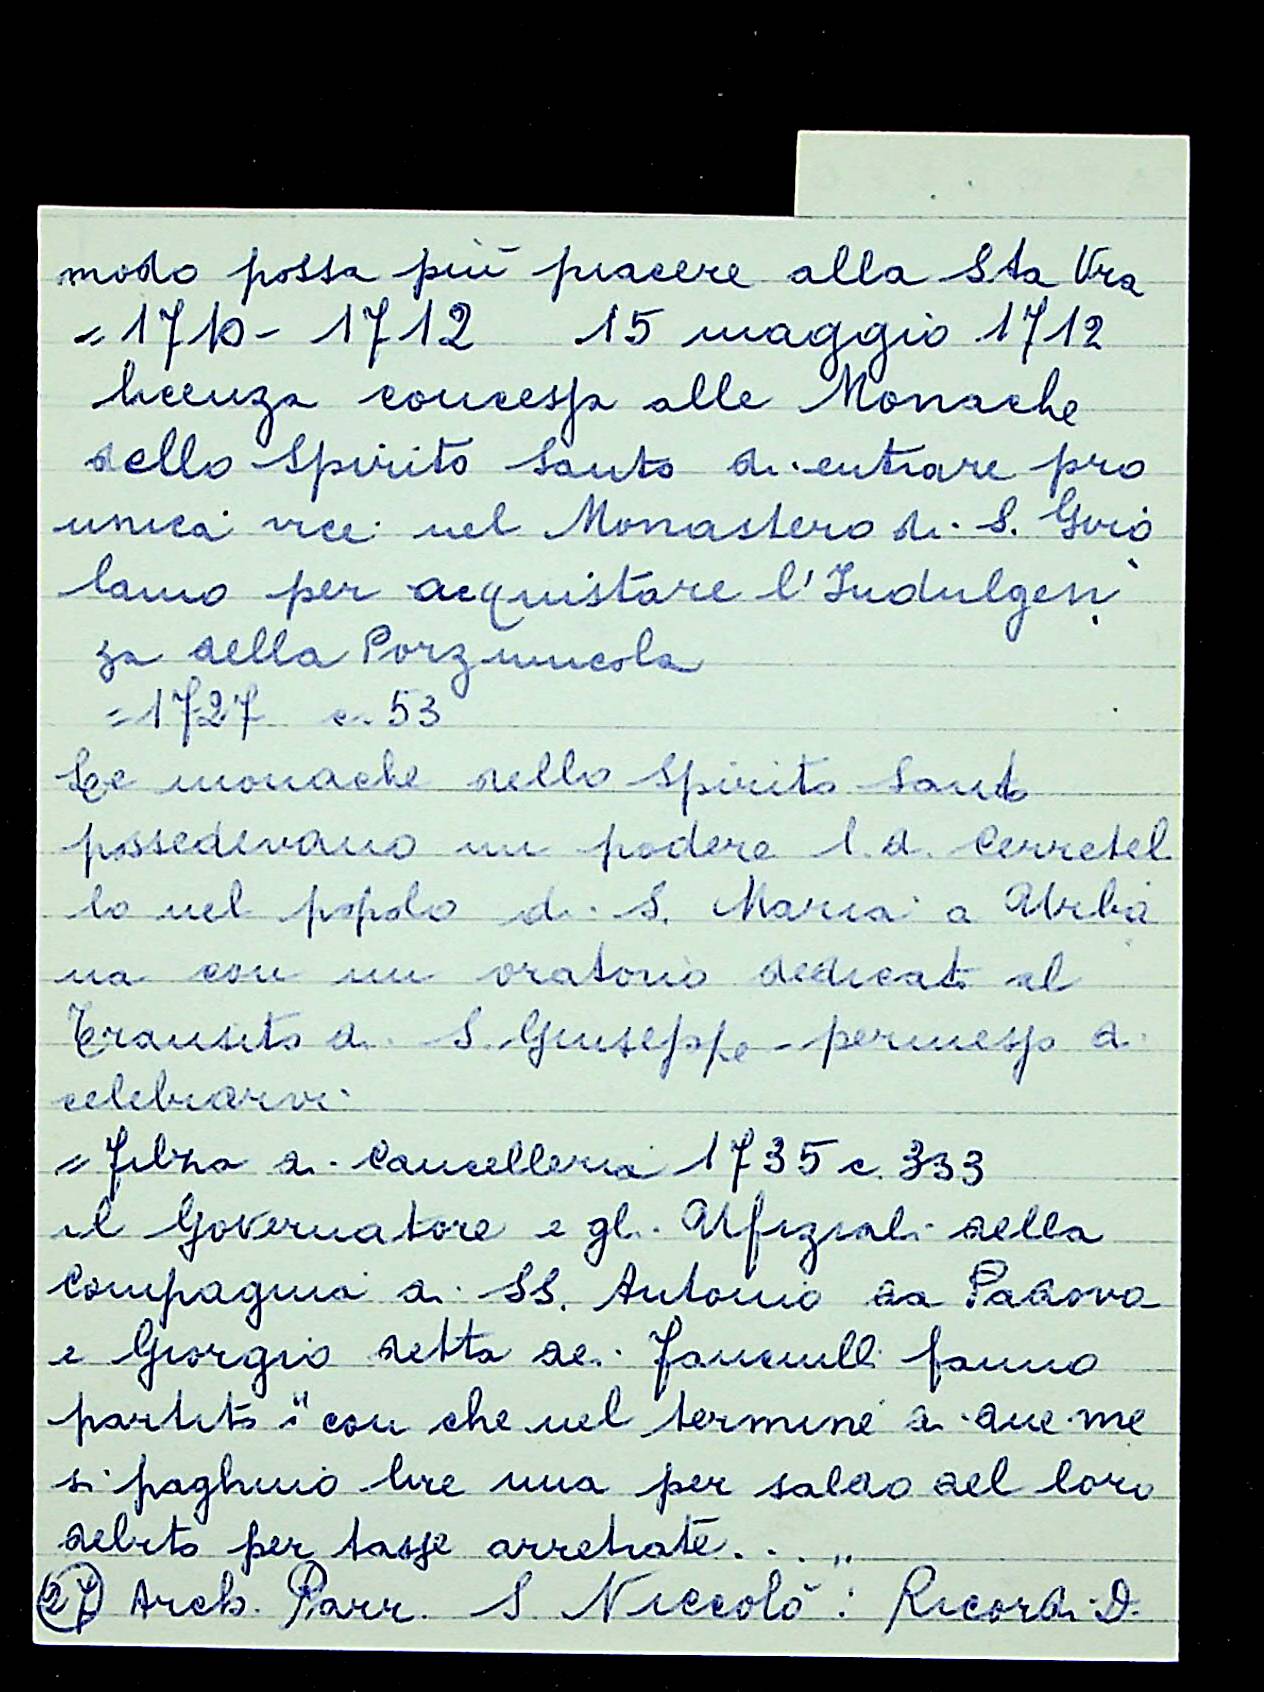 modo possa più piacere alla S.ta Vra
= 1710 - 1712 15 maggio 1712
licenza concessa alle Monache
dello Spirito Santo di entrare pro
unica vice nel Monastero di S. Giro
lamo per acquistare l'Indulgen
za della Porziuncola
= 1727 c. 53
Le monache dello Spirito Santo
possedevano un podere l.d. Cerretel
lo nel popolo di S. Maria a Urba
na con un oratorio dedicato al
Transito di S. Giuseppe - permesso di
celebrarvi
= Filza di Cancelleria 1735 c. 333
il Governatore e gli Ufiziali della
Compagnia di SS. Antonio da Padova
e Giorgio detta dei Fanciulli fanno
partito "con che nel termine di due me
si paghino lire una per saldo del loro
debito per tasse arretrate . . . "
(27) Arch. Parr. S. Niccolò : Ricordi D.